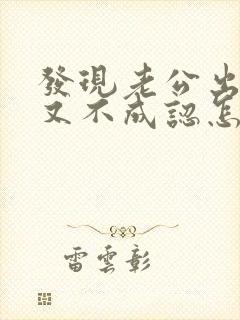 發現老公出
又不成認怎
雷雲彰